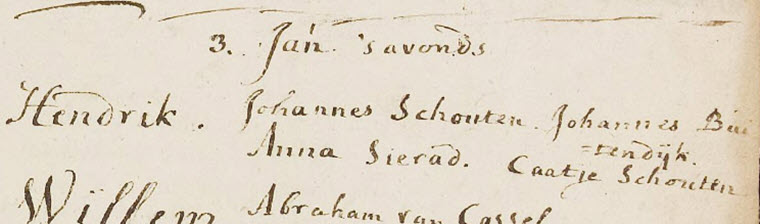 3. Jan. 's avonds
Hendrik. Johannes Schouten. Johannes Bui
=tendijk.
Anna Sierad. Caatje Schouten
Willem Abraham van Cassel